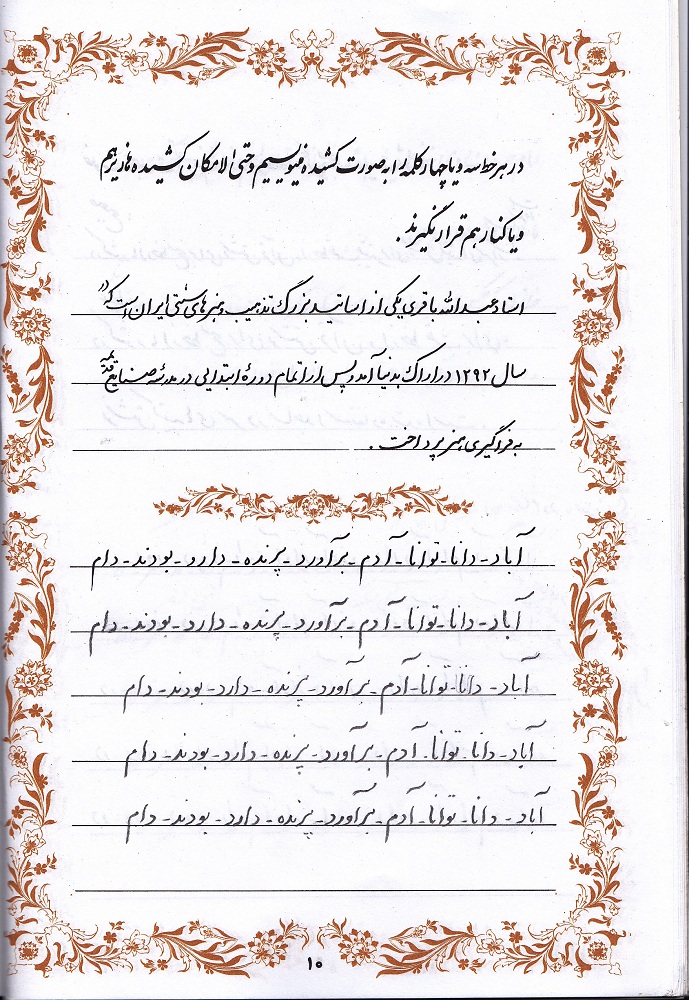 در هر خط سه و یا چهار کلمه را به صورت کشیده مینویسیم و حتی الامکان کشیده ها زیر هم
و یا کنار هم قرار نگیرند .
استاد عبدالله باقری یکی از اساتید بزرگ تذهیب و هنرهای سنتی ایران است که در
سال ۱۲۹۲ در اراک بدنیا آمد و پس از اتمام دورهٔ ابتدایی در مدرسهٔ صنایع قدیمه
به فراگیری هنر پرداخت .
آباد - دانا - توانا - آدم - برآورد - پرنده - دارد - بودند - دام
آباد - دانا - توانا - آدم - برآورد - پرنده - دارد - بودند - دام
آباد - دانا - توانا - آدم - برآورد - پرنده - دارد - بودند - دام
آباد - دانا - توانا - آدم - برآورد - پرنده - دارد - بودند - دام
آباد - دانا - توانا - آدم - برآورد - پرنده - دارد - بودند - دام
۱۰